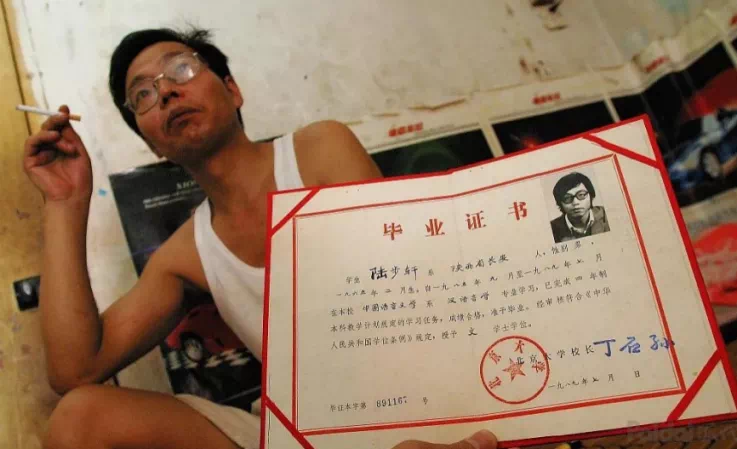 毕业证书
学生 陆步轩 系 陕西省长安 人,性别 男,
一九六五年 月生,自一九八五年 九 月至一九八九年 七 月
在本校 中国语言文学 系 汉语言学 专业学习,已完成 四 年制
本科教学计划规定的学习任务,成绩合格,准予毕业,经审核符合《中华
人民共和国学位条例》规定,授予 文 学士学位。
北京大学校长 丁石孙
北京大学
一九八九年七月 日
毕证本字第 891167 号